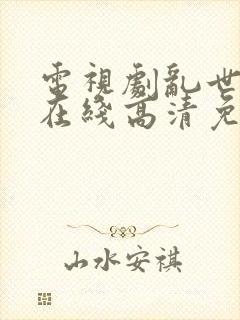 電視劇亂世
在綫高清免
山水安祺